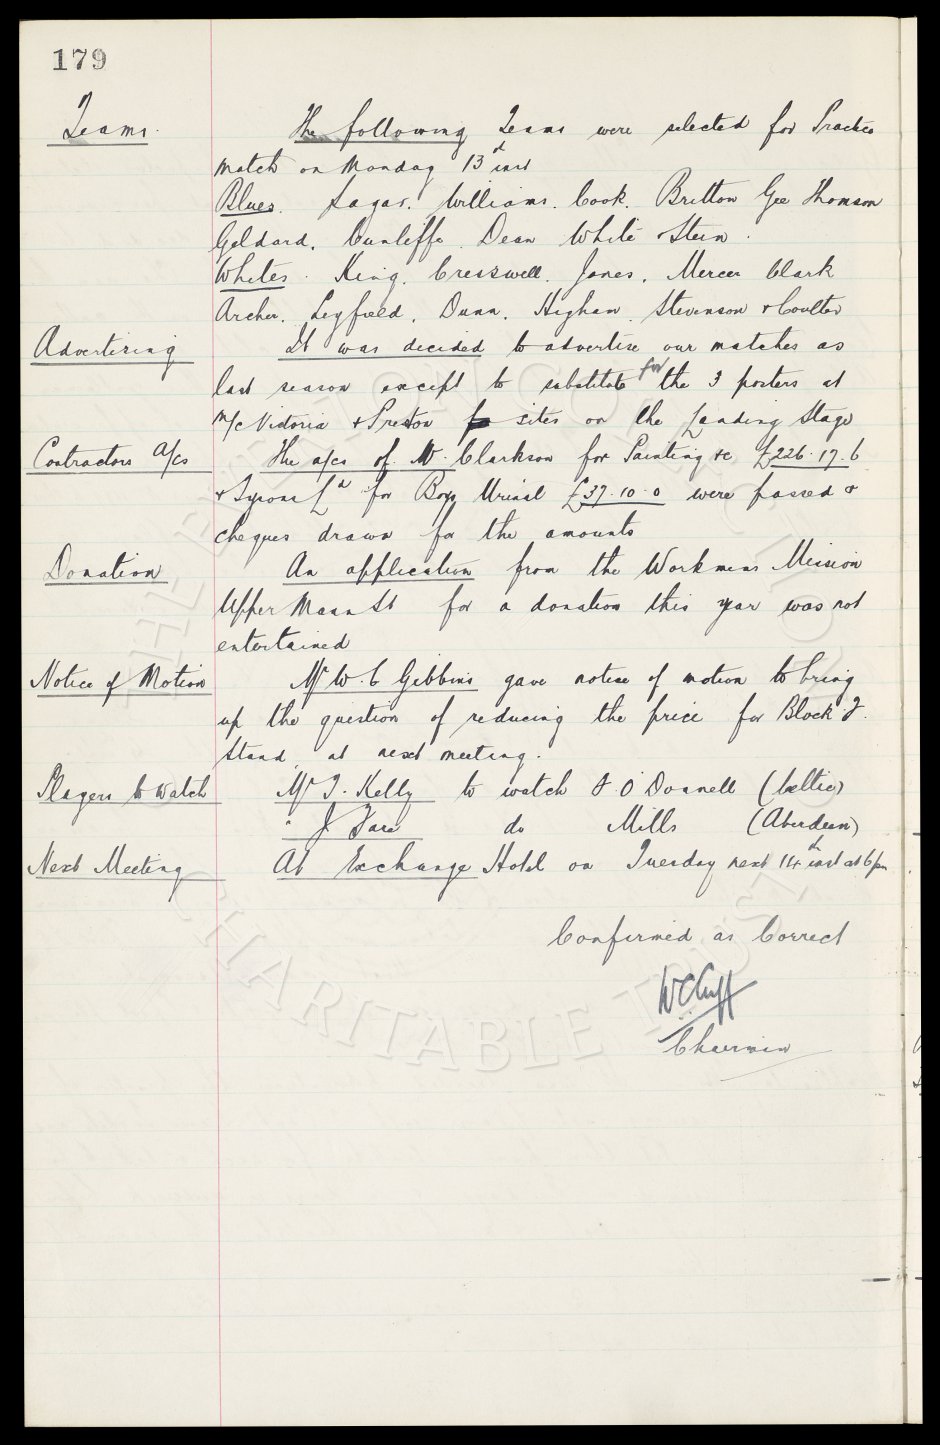 179
Teams. The following Teams were selected for Practice
match on Monday 13th inst
Blues. Sagar. Williams. Cook. Britton Gee Thomson
Geldard. Cunliffe. Dean White & Stein.
Whites. King. Cresswell. Jones. Mercer Clark
Archer. Leyfield. Dunn. Higham. Stevenson & Coulter
Advertising It was decided to advertise our matches as
last season except to substitute for the 3 posters at
M/c Victoria & Preston sites on the Landing Stage
Contractors a/cs The a/cs of W. Clarkson for Painting &c £226.17.6
& Tysons Ld for Boys Urinal £37.10.0 were passed &
cheques drawn for the amounts
Donation An application from the Workmens Mission
Upper Mann St for a donation this year was not
entertained
Notice of Motion Mr W. C Gibbins gave notice of motion to bring
up the question of reducing the price for Block J.
Stand, at next meeting.
Players to Watch Mr T. Kelly to watch F O'Donnell (Celtic)
" J Fare do Mills (Aberdeen)
Next Meeting At Exchange Hotel on Tuesday next 14th inst at 6pm
Confirmed as Correct
WCCuff
Chairman
THE EVERTON COLLECTION
CHARITABLE TRUST